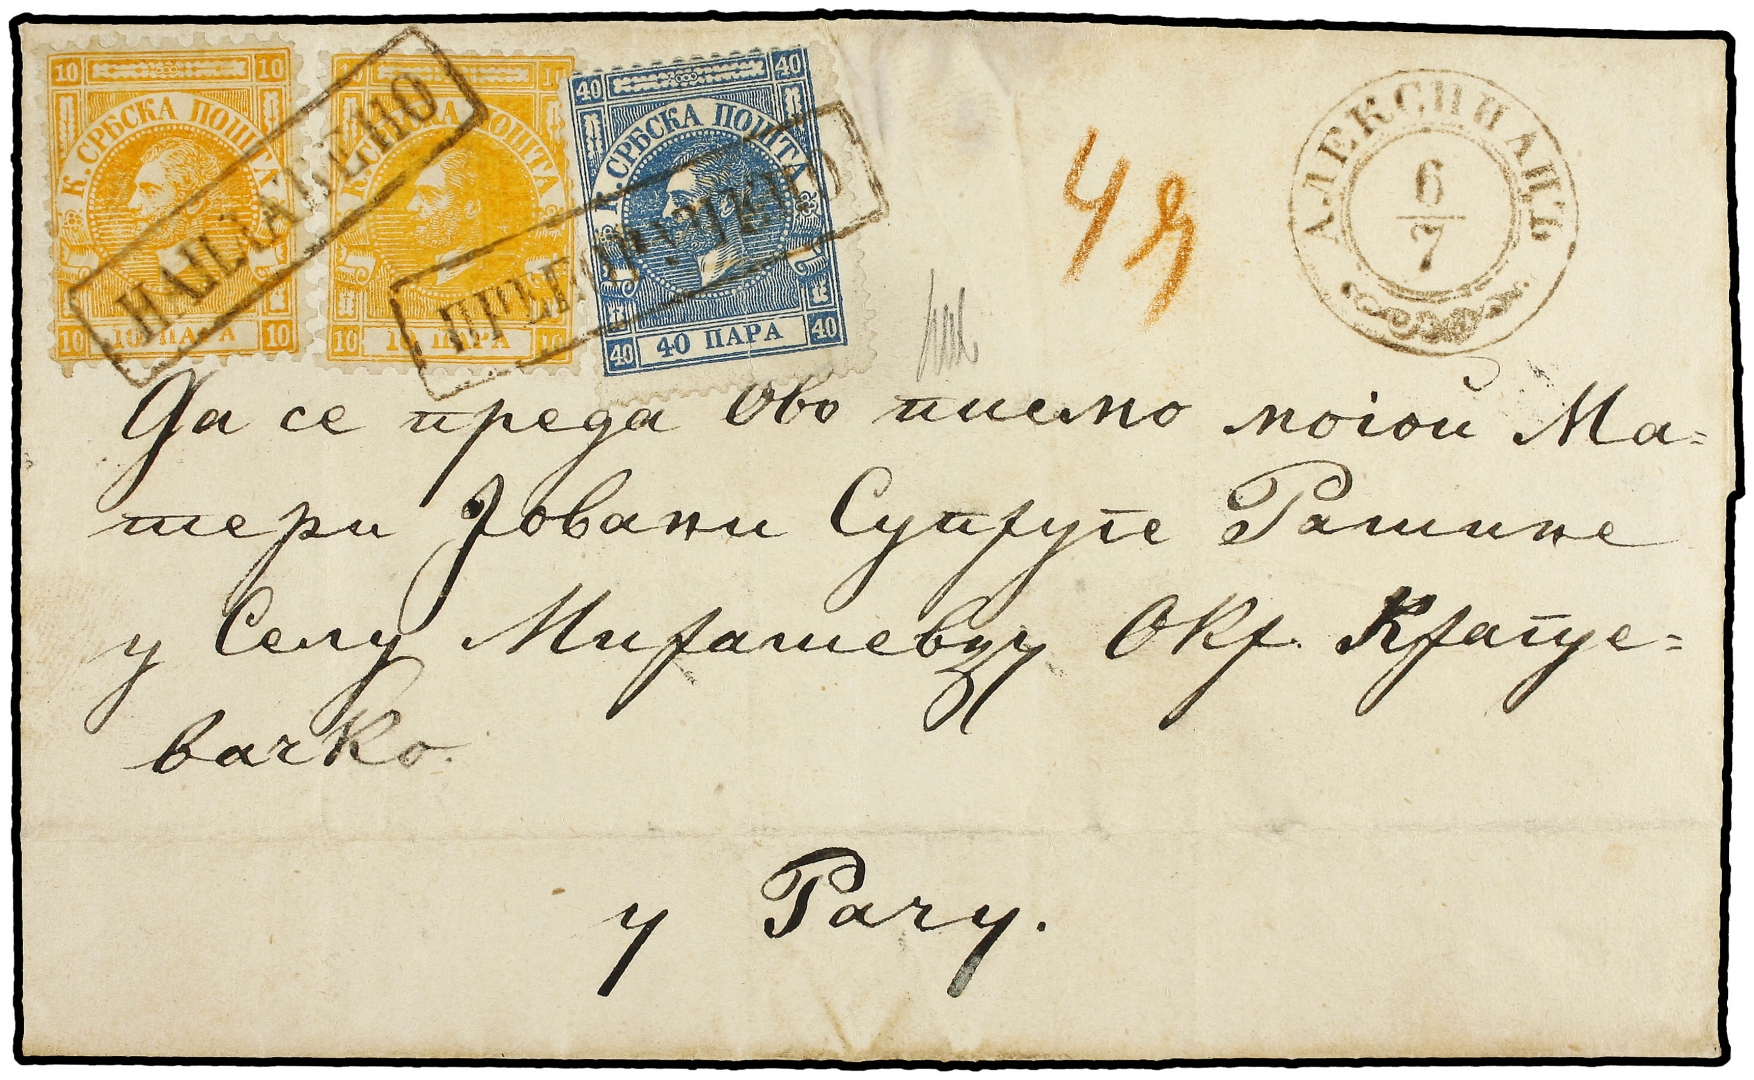 10 10 10 10 40 40
К. СРБСКА ПОШТА К. СРБСКА ПОШТА К. СРБСКА ПОШТА
10 ПАРА 10 10 10 ПАРА 10 40 40 ПАРА 40
НАПЛАЋЕНО
ПРЕПОРУЧЕНО
АЛЕКСИНАЦЪ
6
7
Да се преда Ово писмо моіой Ма=
тери Јовани Супруге Рашине
у Селу Мирашевцу Окр. Крагуе=
вачко.
у Рачу.